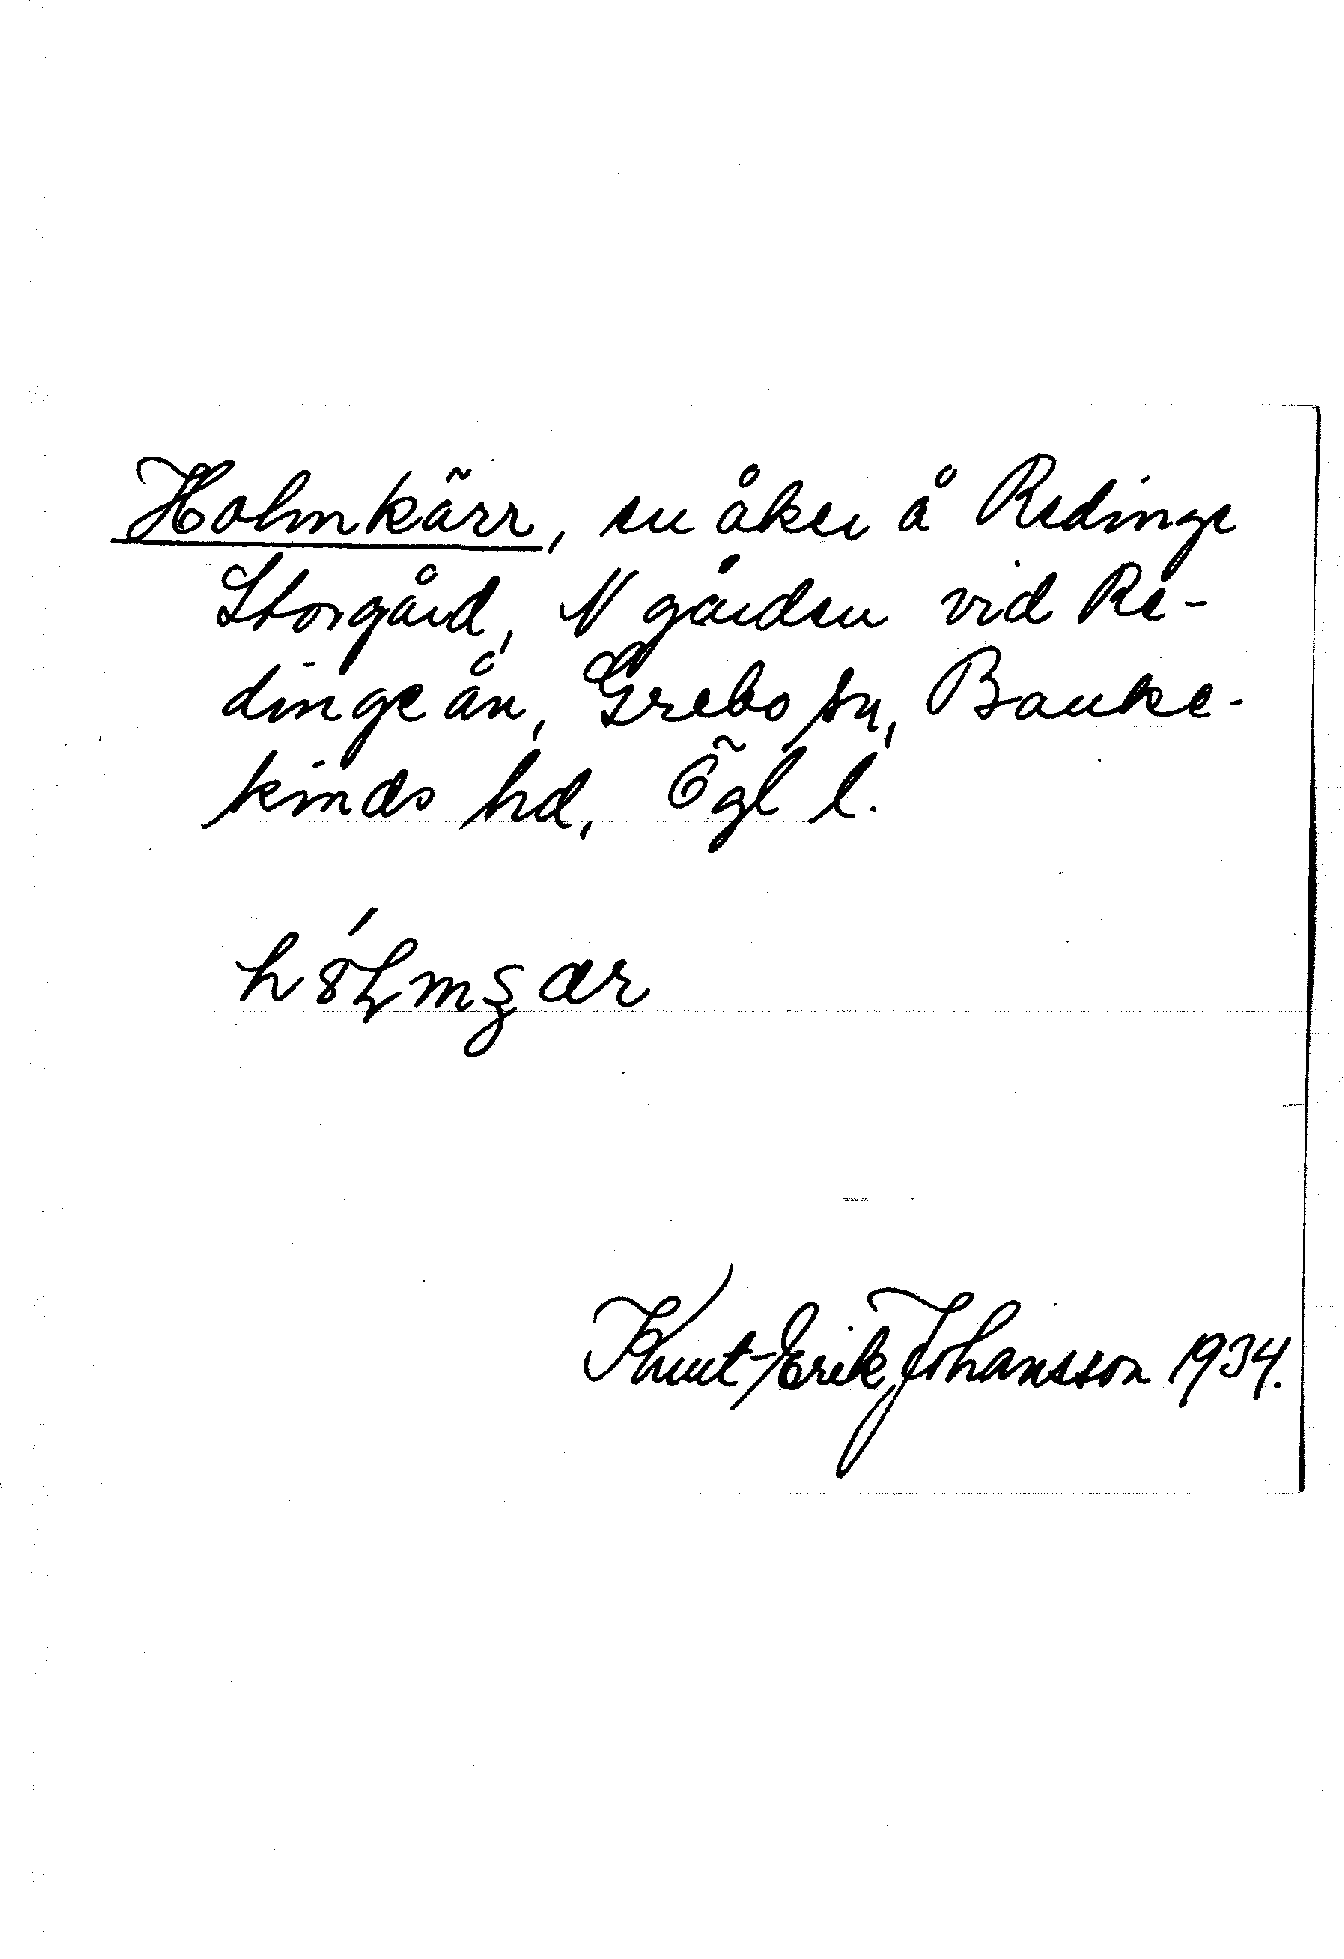 Holmkärr, en åker å Redinge
Storgård, N gården vid Re-
dingeån, Grebo sn, Banke-
kinds hd, Ögl l.
Knut-Erik Johansson 1934.